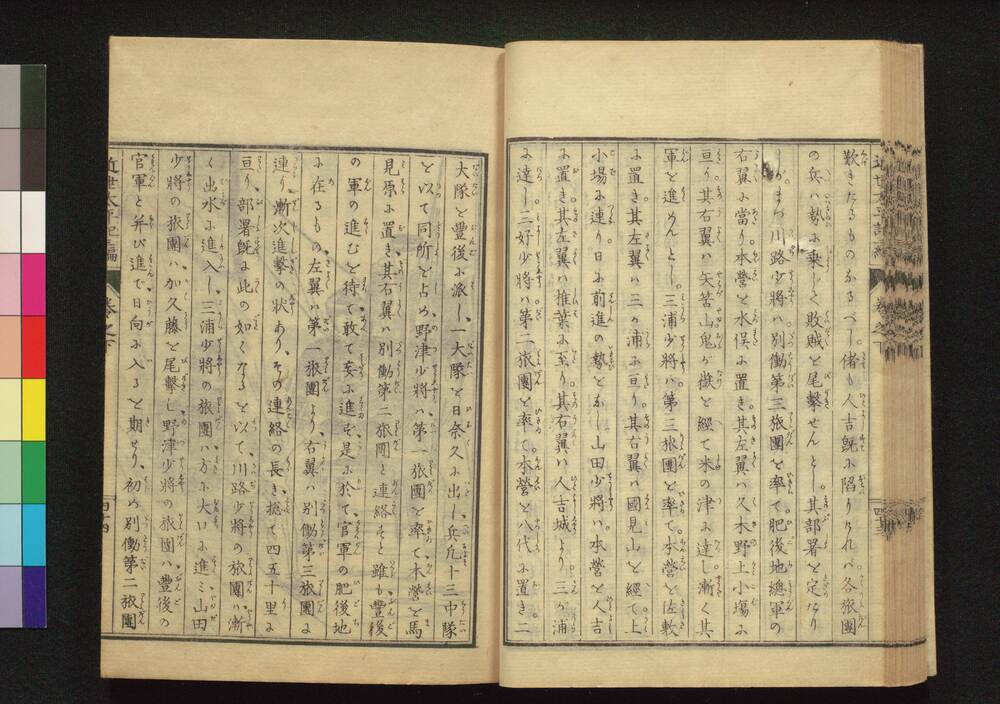 歎きたるものなるべし。偖も人吉既に陷りければ各旅團
の兵は勢に乗じて敗賊を尾撃せんとし。其部署を定めけり
まづ川路少將は別働第三旅團を率て。肥後地總軍の
右翼に當り。本營を水俣に置き。其左翼は久木野上小塲に
亘り。其右翼は矢筈山鬼が嶽を經て米の津に達し漸く其
軍を進めんとし。三浦少將は第三旅團を率て。本營を佐敷
に置き。其左翼は三ヶ浦に亘り。其右翼は國見山を經て上
小塲に連り。日に前進の勢をなし山田少將は。本營を人吉
に置き。其左翼は推葉に至り。其右翼は人吉城より三が浦
に達し三好少將は第二旅團を率て。本營を八代に置き。二
大隊を豊後に派し、一大隊を日奈久に出し、兵凡十三中隊
を以て同所を占め、野津少將は、第一旅團を率て、本營を馬
見原に置き、其右翼は別働第二旅團と連絡すと雖も豊後
の軍の進むを待て敢て妄に進まず是に於て、官軍の肥後地
に在るもの、左翼は第一旅團より、右翼は別働第三旅團に
連り、漸次進撃の状あり、その連絡の長き、捴て四五十里に
亘り、部署既に此の如くなるを以て、川路少將の旅團は漸
く出水に進入し、三浦少將の旅團は、方に大口に進ミ山田
少將の旅團は加久藤を尾撃し、野津少將の旅團は豊後の
官軍と并び進で日向に入ると期せり、初め別働第二旅團
近世太平記編
卷之下
四十四